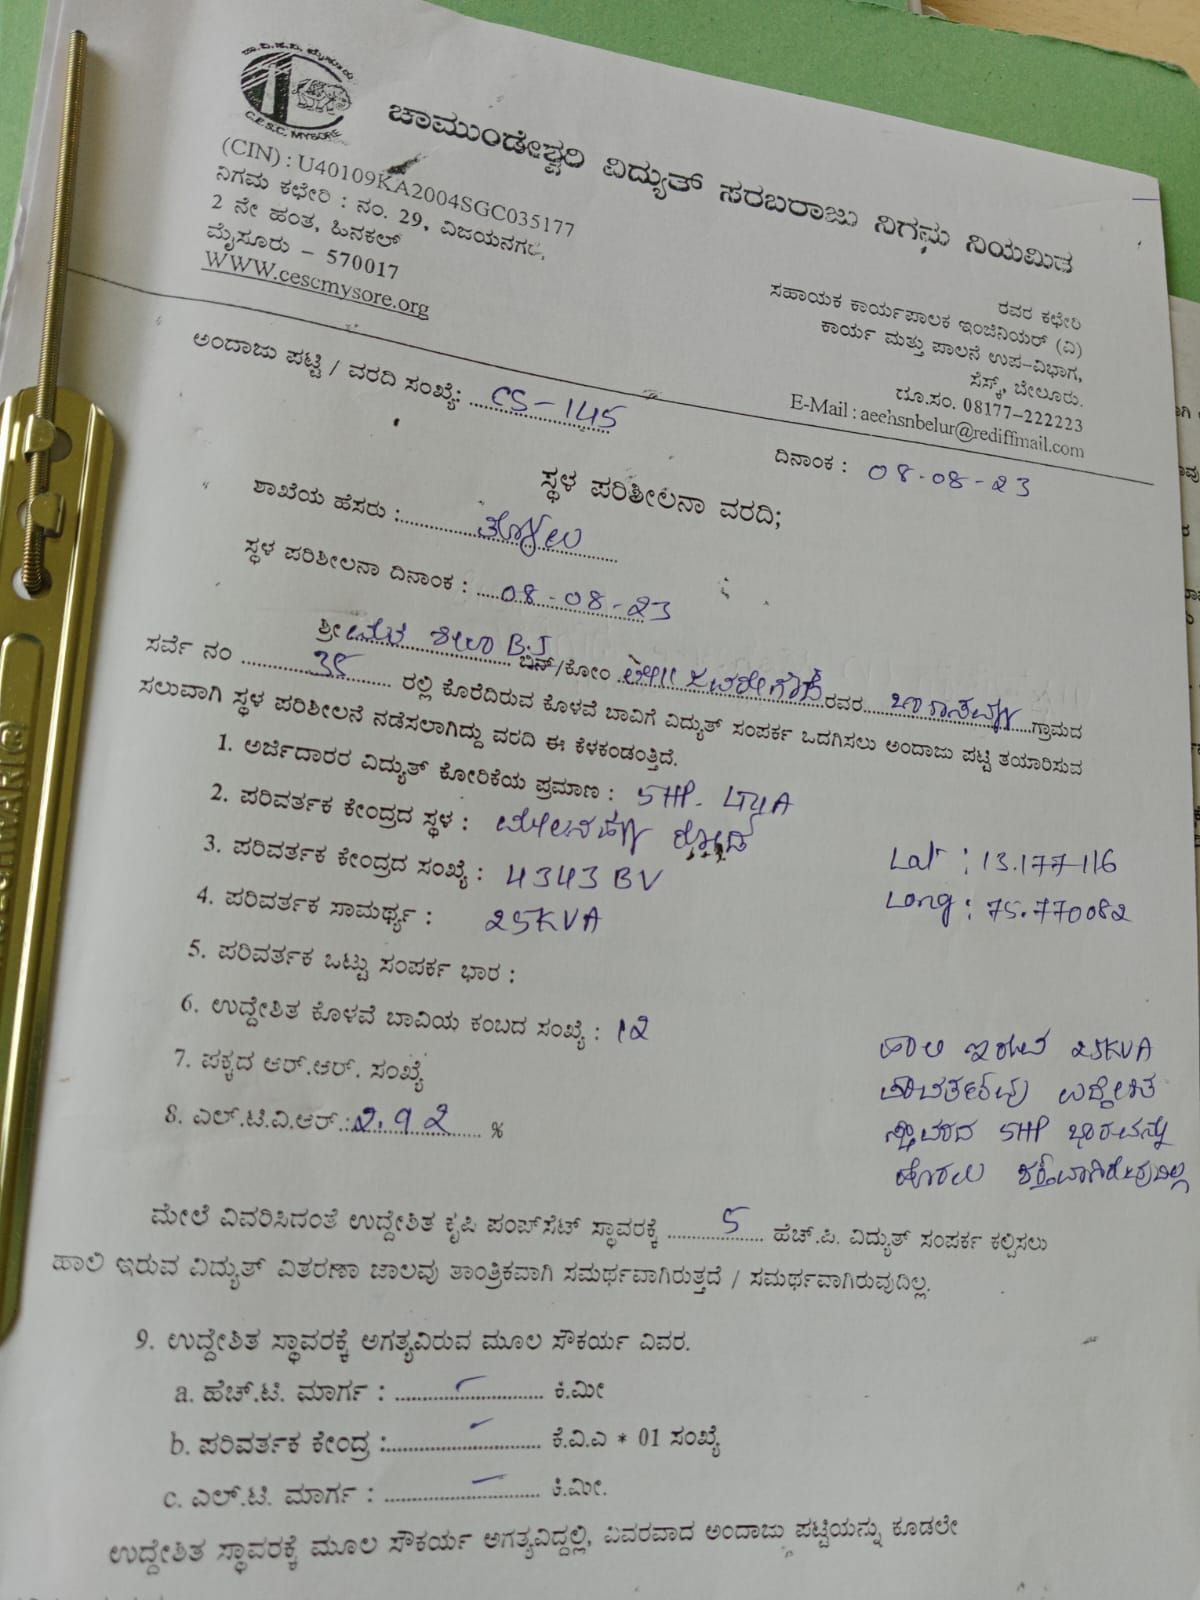 ಚಾ.ವಿ.ಸ.ನಿ. ಮೈಸೂರು
C.E.S.C. MYSORE
ಚಾಮುಂಡೇಶ್ವರಿ ವಿದ್ಯುತ್ ಸರಬರಾಜು ನಿಗಮ ನಿಯಮಿತ
(CIN) : U40109KA2004SGC035177
ನಿಗಮ ಕಛೇರಿ : ನಂ. 29, ವಿಜಯನಗರ,
2 ನೇ ಹಂತ, ಹಿನಕಲ್
ಮೈಸೂರು – 570017
WWW.cescmysore.org
ರವರ ಕಛೇರಿ
ಸಹಾಯಕ ಕಾರ್ಯಪಾಲಕ ಇಂಜಿನಿಯರ್ (ವಿ)
ಕಾರ್ಯ ಮತ್ತು ಪಾಲನೆ ಉಪ-ವಿಭಾಗ,
ಸೆಸ್ಕ್, ಬೇಲೂರು.
ದೂ.ಸಂ. 08177-222223
E-Mail : aeehsnbelur@rediffmail.com
ಅಂದಾಜು ಪಟ್ಟಿ / ವರದಿ ಸಂಖ್ಯೆ: CS-145
ದಿನಾಂಕ : 08-08-23
ಸ್ಥಳ ಪರಿಶೀಲನಾ ವರದಿ;
ಶಾಖೆಯ ಹೆಸರು :
ಸ್ಥಳ ಪರಿಶೀಲನಾ ದಿನಾಂಕ : 08-08-23
ಶ್ರೀ B.J ಬಿನ್/ಕೋಂ ರವರ ಗ್ರಾಮದ
ಸರ್ವೆ ನಂ 35 ರಲ್ಲಿ ಕೊರೆದಿರುವ ಕೊಳವೆ ಬಾವಿಗೆ ವಿದ್ಯುತ್ ಸಂಪರ್ಕ ಒದಗಿಸಲು ಅಂದಾಜು ಪಟ್ಟಿ ತಯಾರಿಸುವ
ಸಲುವಾಗಿ ಸ್ಥಳ ಪರಿಶೀಲನೆ ನಡೆಸಲಾಗಿದ್ದು ವರದಿ ಈ ಕೆಳಕಂಡಂತ್ತಿದೆ.
1. ಅರ್ಜಿದಾರರ ವಿದ್ಯುತ್ ಕೋರಿಕೆಯ ಪ್ರಮಾಣ : 5HP- LT4A
2. ಪರಿವರ್ತಕ ಕೇಂದ್ರದ ಸ್ಥಳ :
3. ಪರಿವರ್ತಕ ಕೇಂದ್ರದ ಸಂಖ್ಯೆ : 4343 BV
Lat : 13.177116
4. ಪರಿವರ್ತಕ ಸಾಮರ್ಥ್ಯ : 25KVA
Long : 75.770082
5. ಪರಿವರ್ತಕ ಒಟ್ಟು ಸಂಪರ್ಕ ಭಾರ :
6. ಉದ್ದೇಶಿತ ಕೊಳವೆ ಬಾವಿಯ ಕಂಬದ ಸಂಖ್ಯೆ : 12
7. ಪಕ್ಕದ ಆರ್.ಆರ್. ಸಂಖ್ಯೆ
8. ಎಲ್.ಟಿ.ವಿ.ಆರ್.: 2.92 %
ಹಾಲಿ ಇರುವ 25KVA
ಪರಿವರ್ತಕವು ಉದ್ದೇಶಿತ
ಸ್ಥಾವರದ 5HP ಭಾರವನ್ನು
ಹೊರಲು ಶಕ್ತವಾಗಿರುವುದಿಲ್ಲ
ಮೇಲೆ ವಿವರಿಸಿದಂತೆ ಉದ್ದೇಶಿತ ಕೃಷಿ ಪಂಪ್‌ಸೆಟ್ ಸ್ಥಾವರಕ್ಕೆ 5 ಹೆಚ್.ಪಿ. ವಿದ್ಯುತ್ ಸಂಪರ್ಕ ಕಲ್ಪಿಸಲು
ಹಾಲಿ ಇರುವ ವಿದ್ಯುತ್ ವಿತರಣಾ ಜಾಲವು ತಾಂತ್ರಿಕವಾಗಿ ಸಮರ್ಥವಾಗಿರುತ್ತದೆ / ಸಮರ್ಥವಾಗಿರುವುದಿಲ್ಲ.
9. ಉದ್ದೇಶಿತ ಸ್ಥಾವರಕ್ಕೆ ಅಗತ್ಯವಿರುವ ಮೂಲ ಸೌಕರ್ಯ ವಿವರ.
a. ಹೆಚ್.ಟಿ. ಮಾರ್ಗ : – ಕಿ.ಮೀ
b. ಪರಿವರ್ತಕ ಕೇಂದ್ರ : – ಕೆ.ವಿ.ಎ * 01 ಸಂಖ್ಯೆ
c. ಎಲ್.ಟಿ. ಮಾರ್ಗ : – ಕಿ.ಮೀ.
ಉದ್ದೇಶಿತ ಸ್ಥಾವರಕ್ಕೆ ಮೂಲ ಸೌಕರ್ಯ ಅಗತ್ಯವಿದ್ದಲ್ಲಿ, ವಿವರವಾದ ಅಂದಾಜು ಪಟ್ಟಿಯನ್ನು ಕೂಡಲೇ